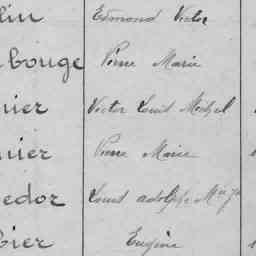 lin Edmond Victor
bouge Pierre Marie
nier Victor Louis Michel
nier Pierre Marie
edor Louis adolphe Mie
bier Eugène